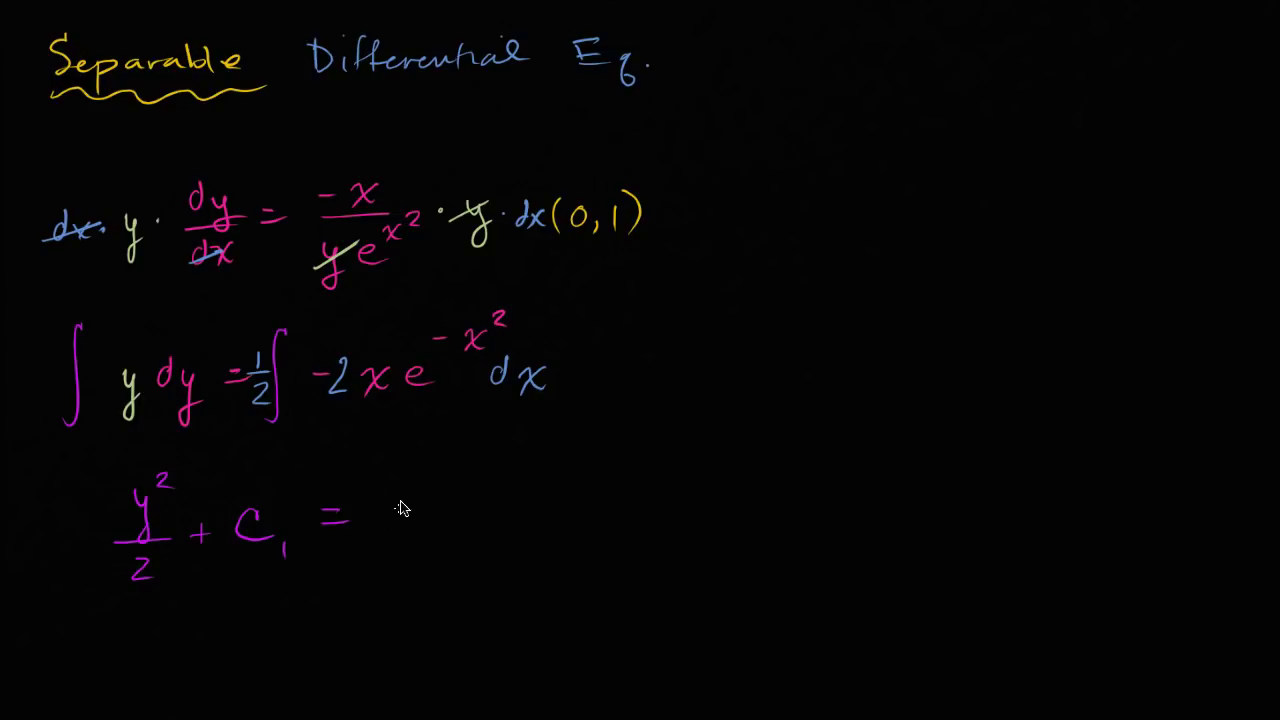 Separable Differential Eq.
dx · y · dy/dx = -x/(y e^x²) · y · dx (0, 1)
∫ y dy = 1/2 ∫ -2x e^-x² dx
y²/2 + C₁ =